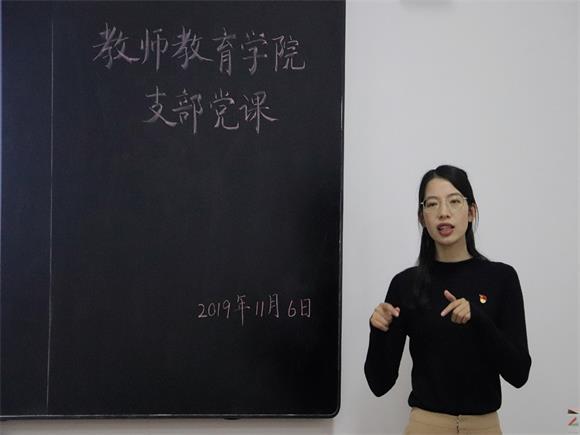 教师教育学院
支部党课
2019年11月6日